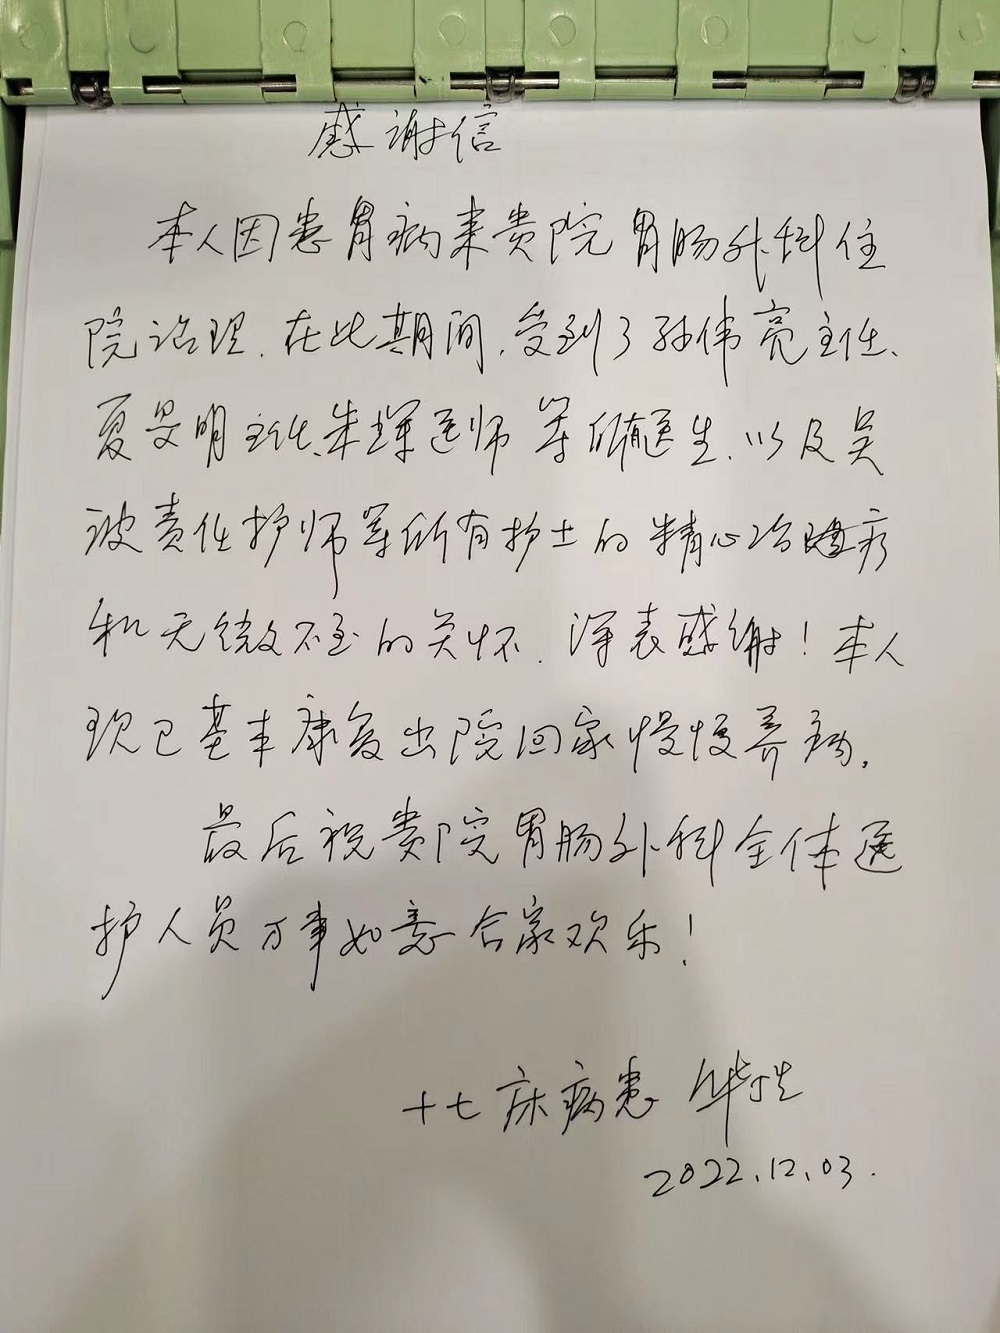 感谢信
本人因患胃病来贵院胃肠外科住
院治理.在此期间,受到了孙伟亮主任、
夏旻明主任、朱璋医师等所有医生.以及吴
波责任护师等所有护士的精心治疗
和无微不至的关怀.深表感谢!本人
现已基本康复出院回家慢慢养病.
最后祝贵院胃肠外科全体医
护人员万事如意合家欢乐!
十七床病患 华
2022.12.03.